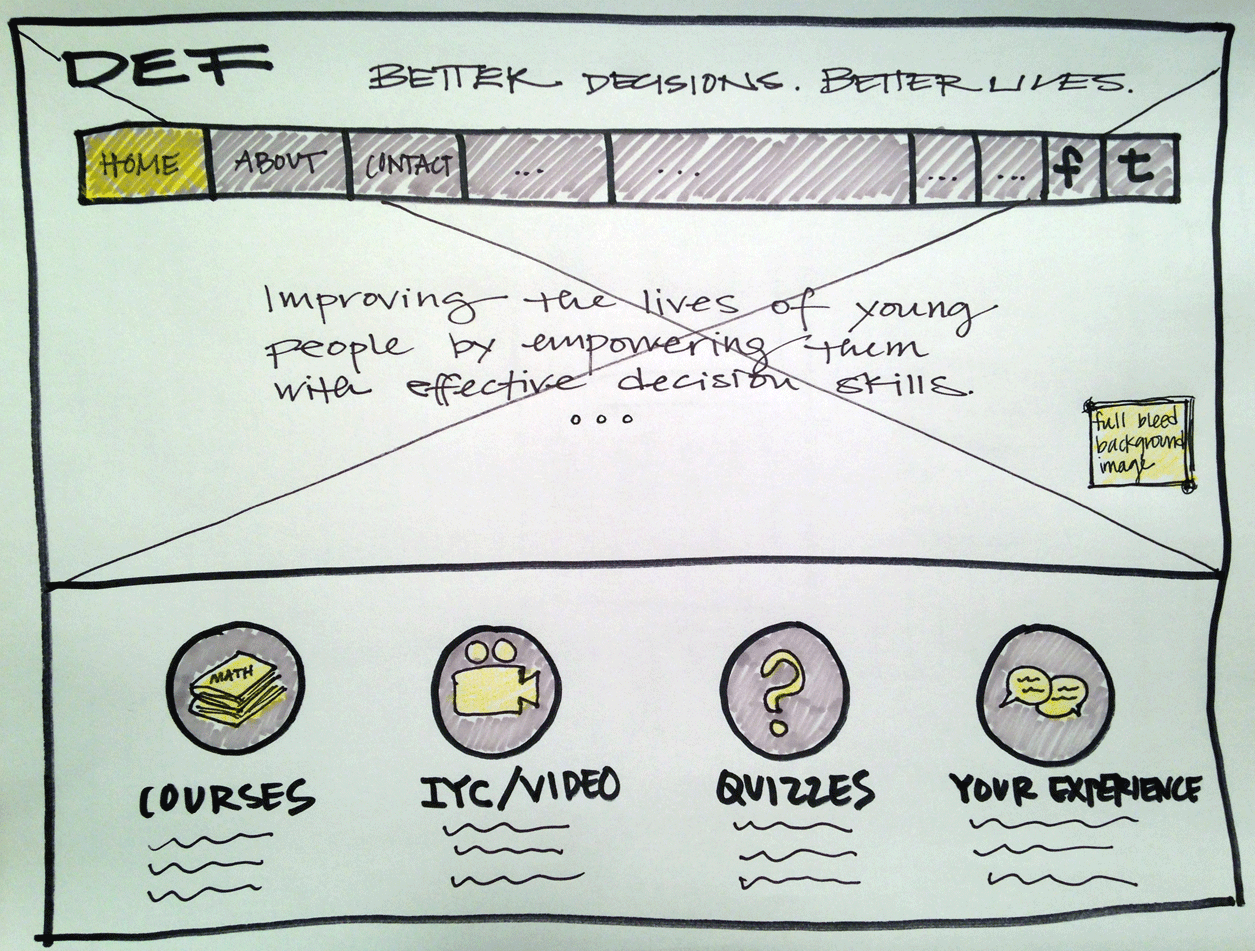 DEF
BETTER DECISIONS. BETTER LIVES.
HOME ABOUT CONTACT ... ... ... ... f t
Improving the lives of young
people by empowering them
with effective decision skills.
...
full bleed
background
image
MATH
?
COURSES IYC/VIDEO QUIZZES YOUR EXPERIENCE